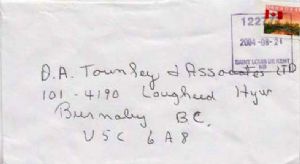 12277
2004-08-21
SAINT LOUIS DE KENT
NB
D.A. Townley & Associates LTD
101-4190 Lougheed Hyw
Burnaby BC.
V5C 6A8